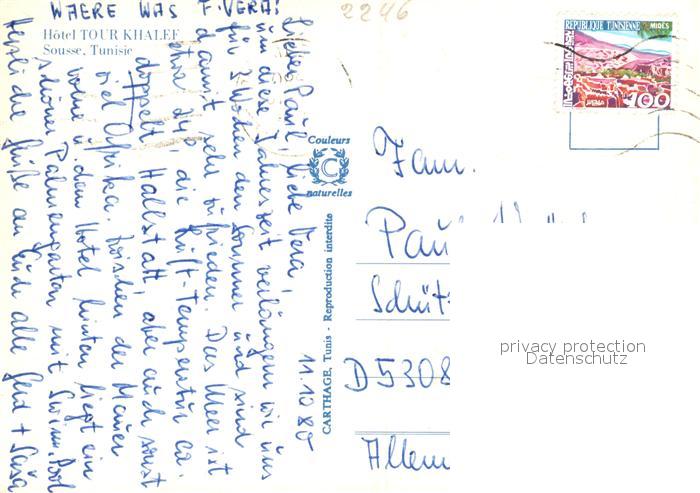 WAERE WAS F. VERA!
2246
Hôtel TOUR KHALEF
Sousse, Tunisie
11.10.80
Liebe Paul, liebe Vera,
um diese Jahreszeit verlängern wir uns
für 3 Wochen den Sommer und sind
damit sehr zufrieden. Das Meer ist
etwa 24°, die Luft-Temperatur ca.
doppelt Hallstatt, aber auch sonst
viel Afrika. Zwischen der Mauer
vorne u. dem Hotel hinten liegt ein
schöner Palmengarten mit Swim.Pool
Herzliche Grüße an Euch alle
Couleurs
C
naturelles
CARTHAGE, Tunis - Reproduction interdite
REPUBLIQUE TUNISIENNE
MIDES
100
Fam.
Pau
Schüt
D 5308
Allem
privacy protection
Datenschutz